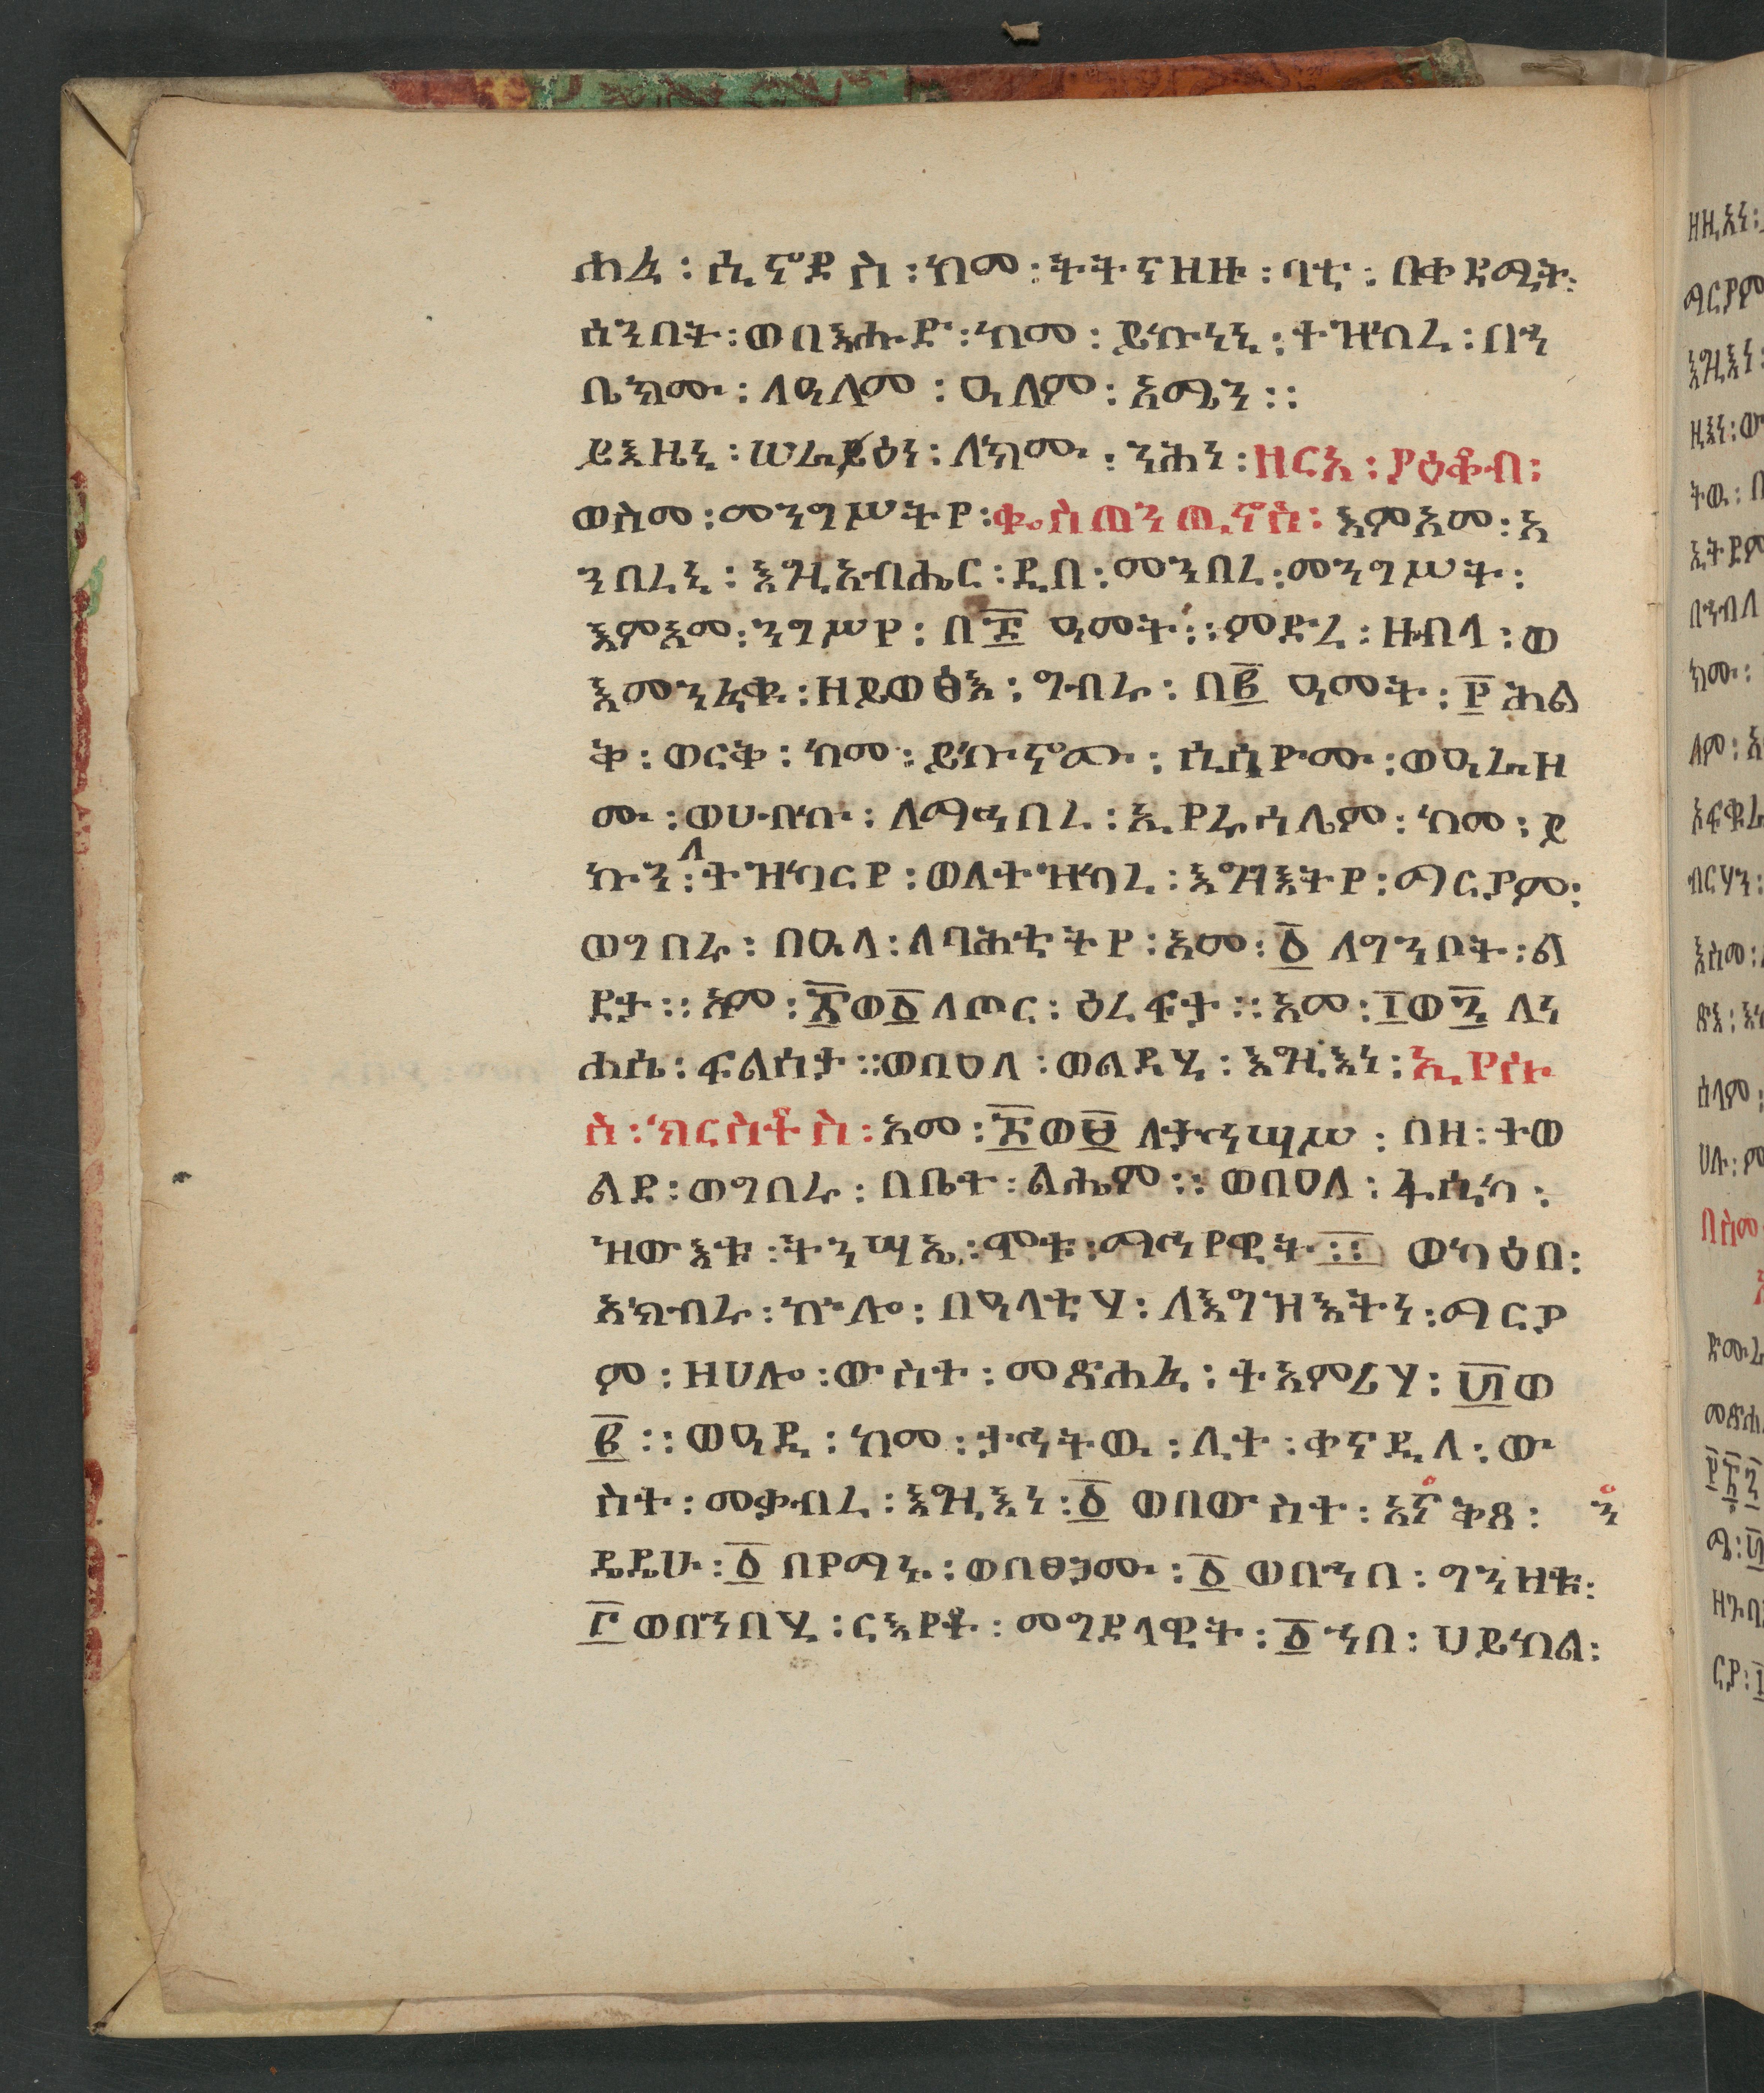 ሐፈ ፡ ሲኖዶስ ፡ ከመ ፡ ትትናዘዙ ፡ ባቲ ፡ በቀዳሚት ፡
ሰንበት ፡ ወበእሑድ ፡ ከመ ፡ ይኩነኒ ፡ ተዝከረ ፡ በኀ
ቤክሙ ፡ ለዓለመ ፡ ዓለም ፡ አሜን ፡፡
ይእዜኒ ፡ ሠራይዕነ ፡ ለክሙ ፡ ንሕነ ፡ ዘርአ ፡ ያዕቆብ ፡
ወስመ ፡ መንግሥትየ ፡ ቈስጠንጢኖስ ፡ እምአመ ፡ አ
ንበረኒ ፡ እግዚአብሔር ፡ ዲበ ፡ መንበረ ፡ መንግሥት ፡
እምአመ ፡ ንግሥየ ፡ በ፰ ዓመት ፡፡ ምድረ ፡ ዙብላ ፡ ወ
እመንፈቁ ፡ ዘይወፅእ ፡ ግብራ ፡ በ፪ ዓመት ፡ ፻ ሕል
ቅ ፡ ወርቅ ፡ ከመ ፡ ይኩኖሙ ፡ ሲሲዮሙ ፡ ወዓራዘ
ሙ ፡ ወሀብኩ ፡ ለማኅበረ ፡ ኢየሩሳሌም ፡ ከመ ፡ ይ
ኩን ፡ ለትዝካርየ ፡ ወለተዝካረ ፡ እግዝእትየ ፡ ማርያም ፡
ወግበሩ ፡ በዓላ ፡ ለባሕቲትየ ፡ አመ ፡ ፩ ለግንቦት ፡ ል
ደታ ፡፡ አመ ፡ ፳ወ፩ ለጦር ፡ ዕረፍታ ፡፡ አመ ፡ ፲ወ፯ ለነ
ሐሴ ፡ ፍልሰታ ፡፡ ወበዐለ ፡ ወልዳሂ ፡ እግዚእነ ፡ ኢየሱ
ስ ፡ ክርስቶስ ፡ አመ ፡ ፳ወ፱ ለታኅሣሥ ፡ በዘ ፡ ተወ
ልደ ፡ ወግበሩ ፡ በቤተ ፡ ልሔም ፡፡ ወበዐለ ፡ ፋሲካ ፡
ዝውእቱ ፡ ትንሣኤ ፡ ሞቱ ፡ ማኅየዊት ፡፡ ወካዕበ ፡
አክብሩ ፡ ኵሎ ፡ በዓላቲሃ ፡ ለእግዝእትነ ፡ ማርያ
ም ፡ ዘሀሎ ፡ ውስተ ፡ መጽሐፈ ፡ ተአምሪሃ ፡ ፴ወ
፪ ፡፡ ወዓዲ ፡ ከመ ፡ ታኅትዉ ፡ ሊተ ፡ ቀናዲለ ፡ ው
ስተ ፡ መቃብረ ፡ እግዚእነ ፡ ፩ ወበውስተ ፡ አናቅጸ ፡ ን
ዴዴሁ ፡ ፩ በየማኑ ፡ ወበፀጋሙ ፡ ፩ ወበኀበ ፡ ግንዘቱ ፡
፫ ወበኀበሂ ፡ ርእየቶ ፡ መግደላዊት ፡ ፩ ኀበ ፡ ህይከል ፡